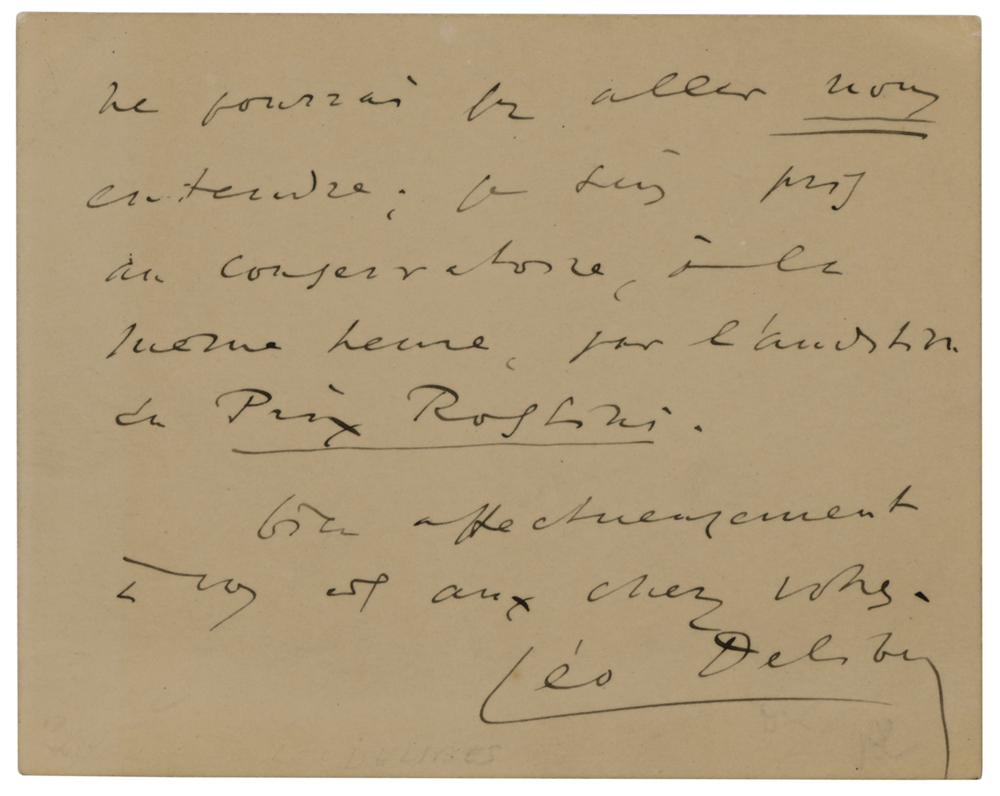 ne pourrai pas aller vous
entendre ; je suis pris
au Conservatoire, à la
même heure, par l'audition
du Prix Rossini.
bien affectueusement
à vous et aux chers vôtres.
Léo Delibes
DELIBES